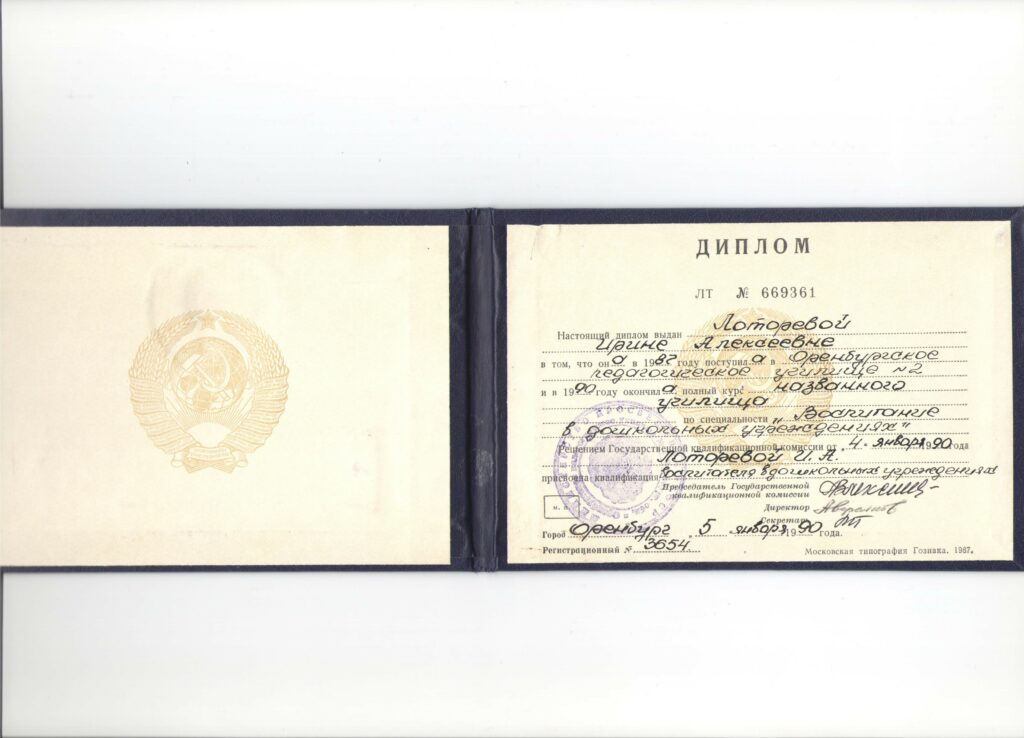 ДИПЛОМ
ЛТ № 669361
Настоящий диплом выдан Лоторевой
Ирине Алексеевне
в том, что он а в 1987 году поступил а в Оренбургское
педагогическое училище №2
и в 1990 году окончил а полный курс названного
училища
по специальности „Воспитание
в дошкольных учреждениях"
Решением Государственной квалификационной комиссии от „4" января 1990 года
Лоторевой И. А.
присвоена квалификация воспитателя в дошкольных учреждениях
Председатель Государственной
квалификационной комиссии
Директор
Секретарь
М. П.
Город Оренбург „5" января 1990 года.
Регистрационный № 3654
Московская типография Гознака. 1987.